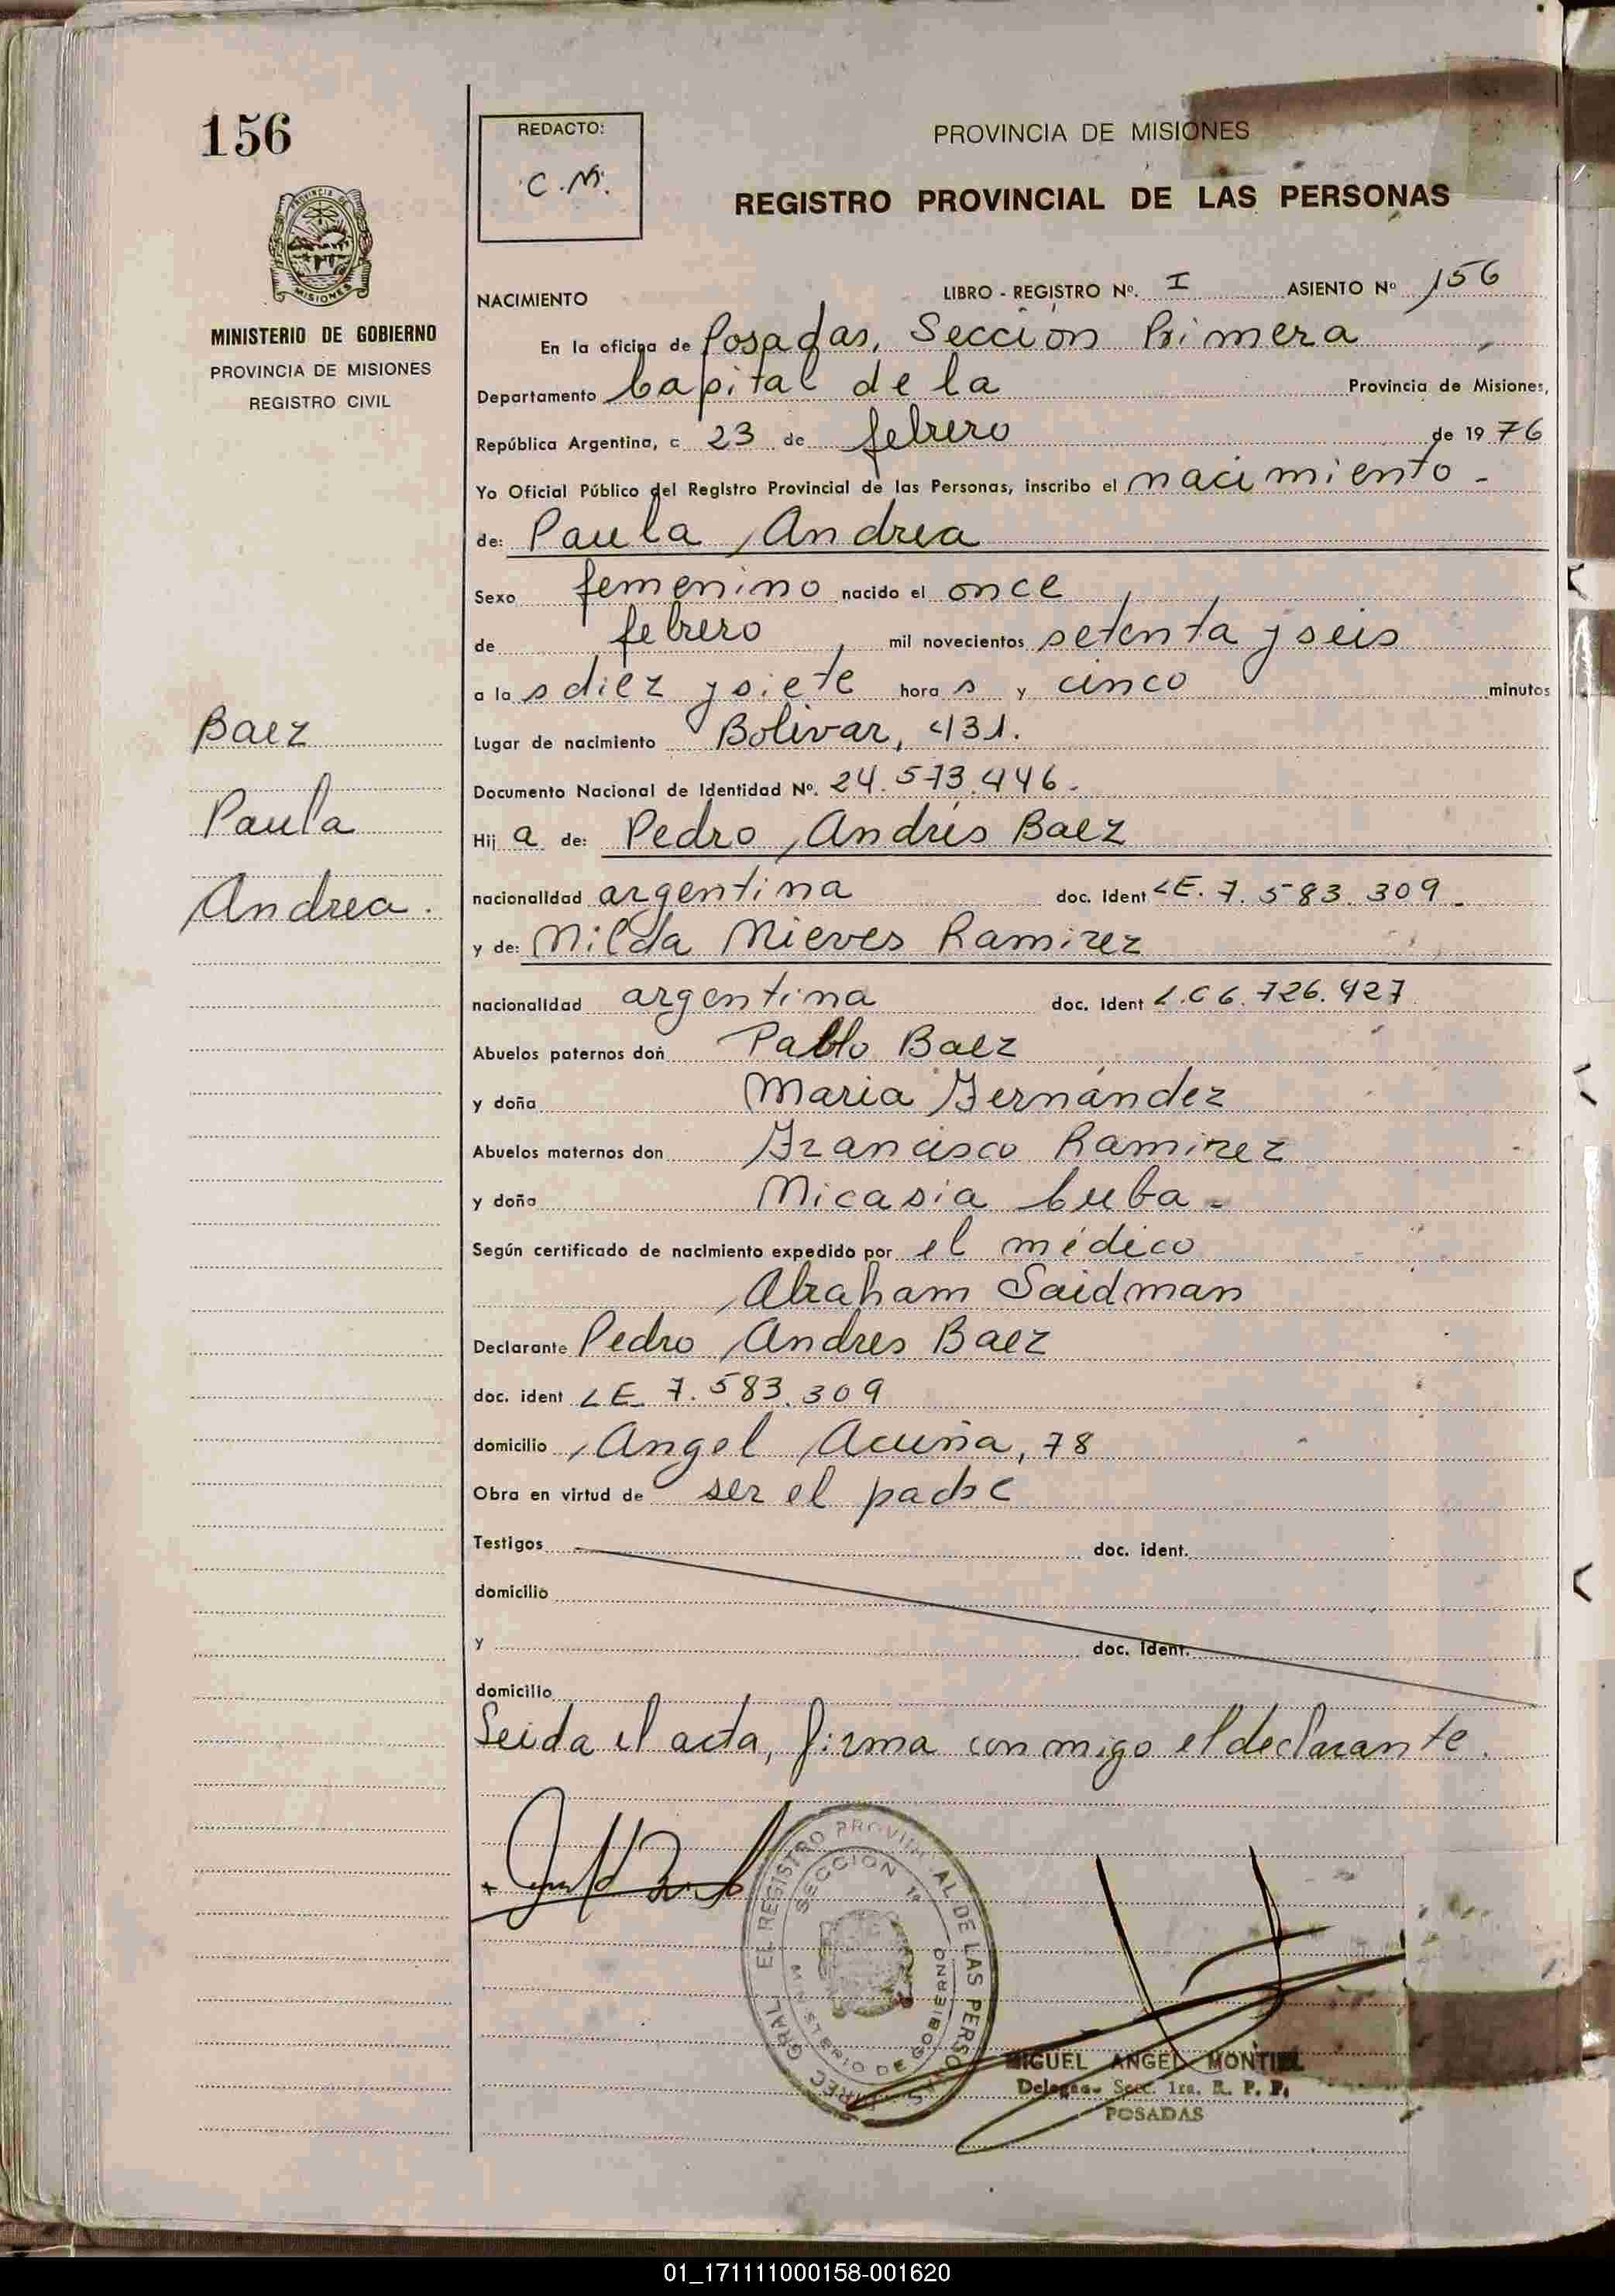 156
PROVINCIA DE MISIONES
MINISTERIO DE GOBIERNO
PROVINCIA DE MISIONES
REGISTRO CIVIL
Baez
Paula
Andrea.
REDACTO:
C.M.
PROVINCIA DE MISIONES
REGISTRO PROVINCIAL DE LAS PERSONAS
NACIMIENTO LIBRO - REGISTRO Nº. I ASIENTO Nº 156
En la oficina de Posadas, Sección Primera
Departamento Capital de la Provincia de Misiones,
República Argentina, a 23 de febrero de 1976
Yo Oficial Público del Registro Provincial de las Personas, inscribo el nacimiento -
de: Paula Andrea
Sexo femenino nacido el once
de febrero mil novecientos setenta y seis
a la s diez y siete hora s y cinco minutos
Lugar de nacimiento Bolivar, 431.
Documento Nacional de Identidad Nº. 24.573.446.
Hij a de: Pedro Andrés Baez
nacionalidad argentina doc. ident LE. 7.583.309
y de: Nilda Nieves Ramirez
nacionalidad argentina doc. ident L.C 6.726.427
Abuelos paternos don Pablo Baez
y doña Maria Fernández
Abuelos maternos don Francisco Ramirez
y doña Micasia Cuba -
Según certificado de nacimiento expedido por el médico
Abraham Saidman
Declarante Pedro Andres Baez
doc. ident LE 7.583.309
domicilio Angel Acuña, 78
Obra en virtud de ser el padre
Testigos doc. ident.
domicilio
y doc. ident.
domicilio
Leida el acta, firma conmigo el declarante.
DIREC. GRAL. EL REGISTRO PROVINCIAL DE LAS PERSONAS
SECCION 1ª
MINISTERIO DE GOBIERNO
MIGUEL ANGEL MONTIEL
Delegado Secc. 1ra. R. P. P.
POSADAS
01_171111000158-001620